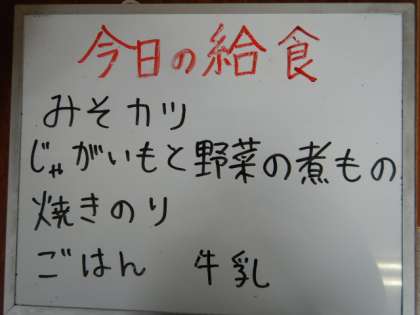 今日の給食
みそカツ
じゃがいもと野菜の煮もの
焼きのり
ごはん 牛乳